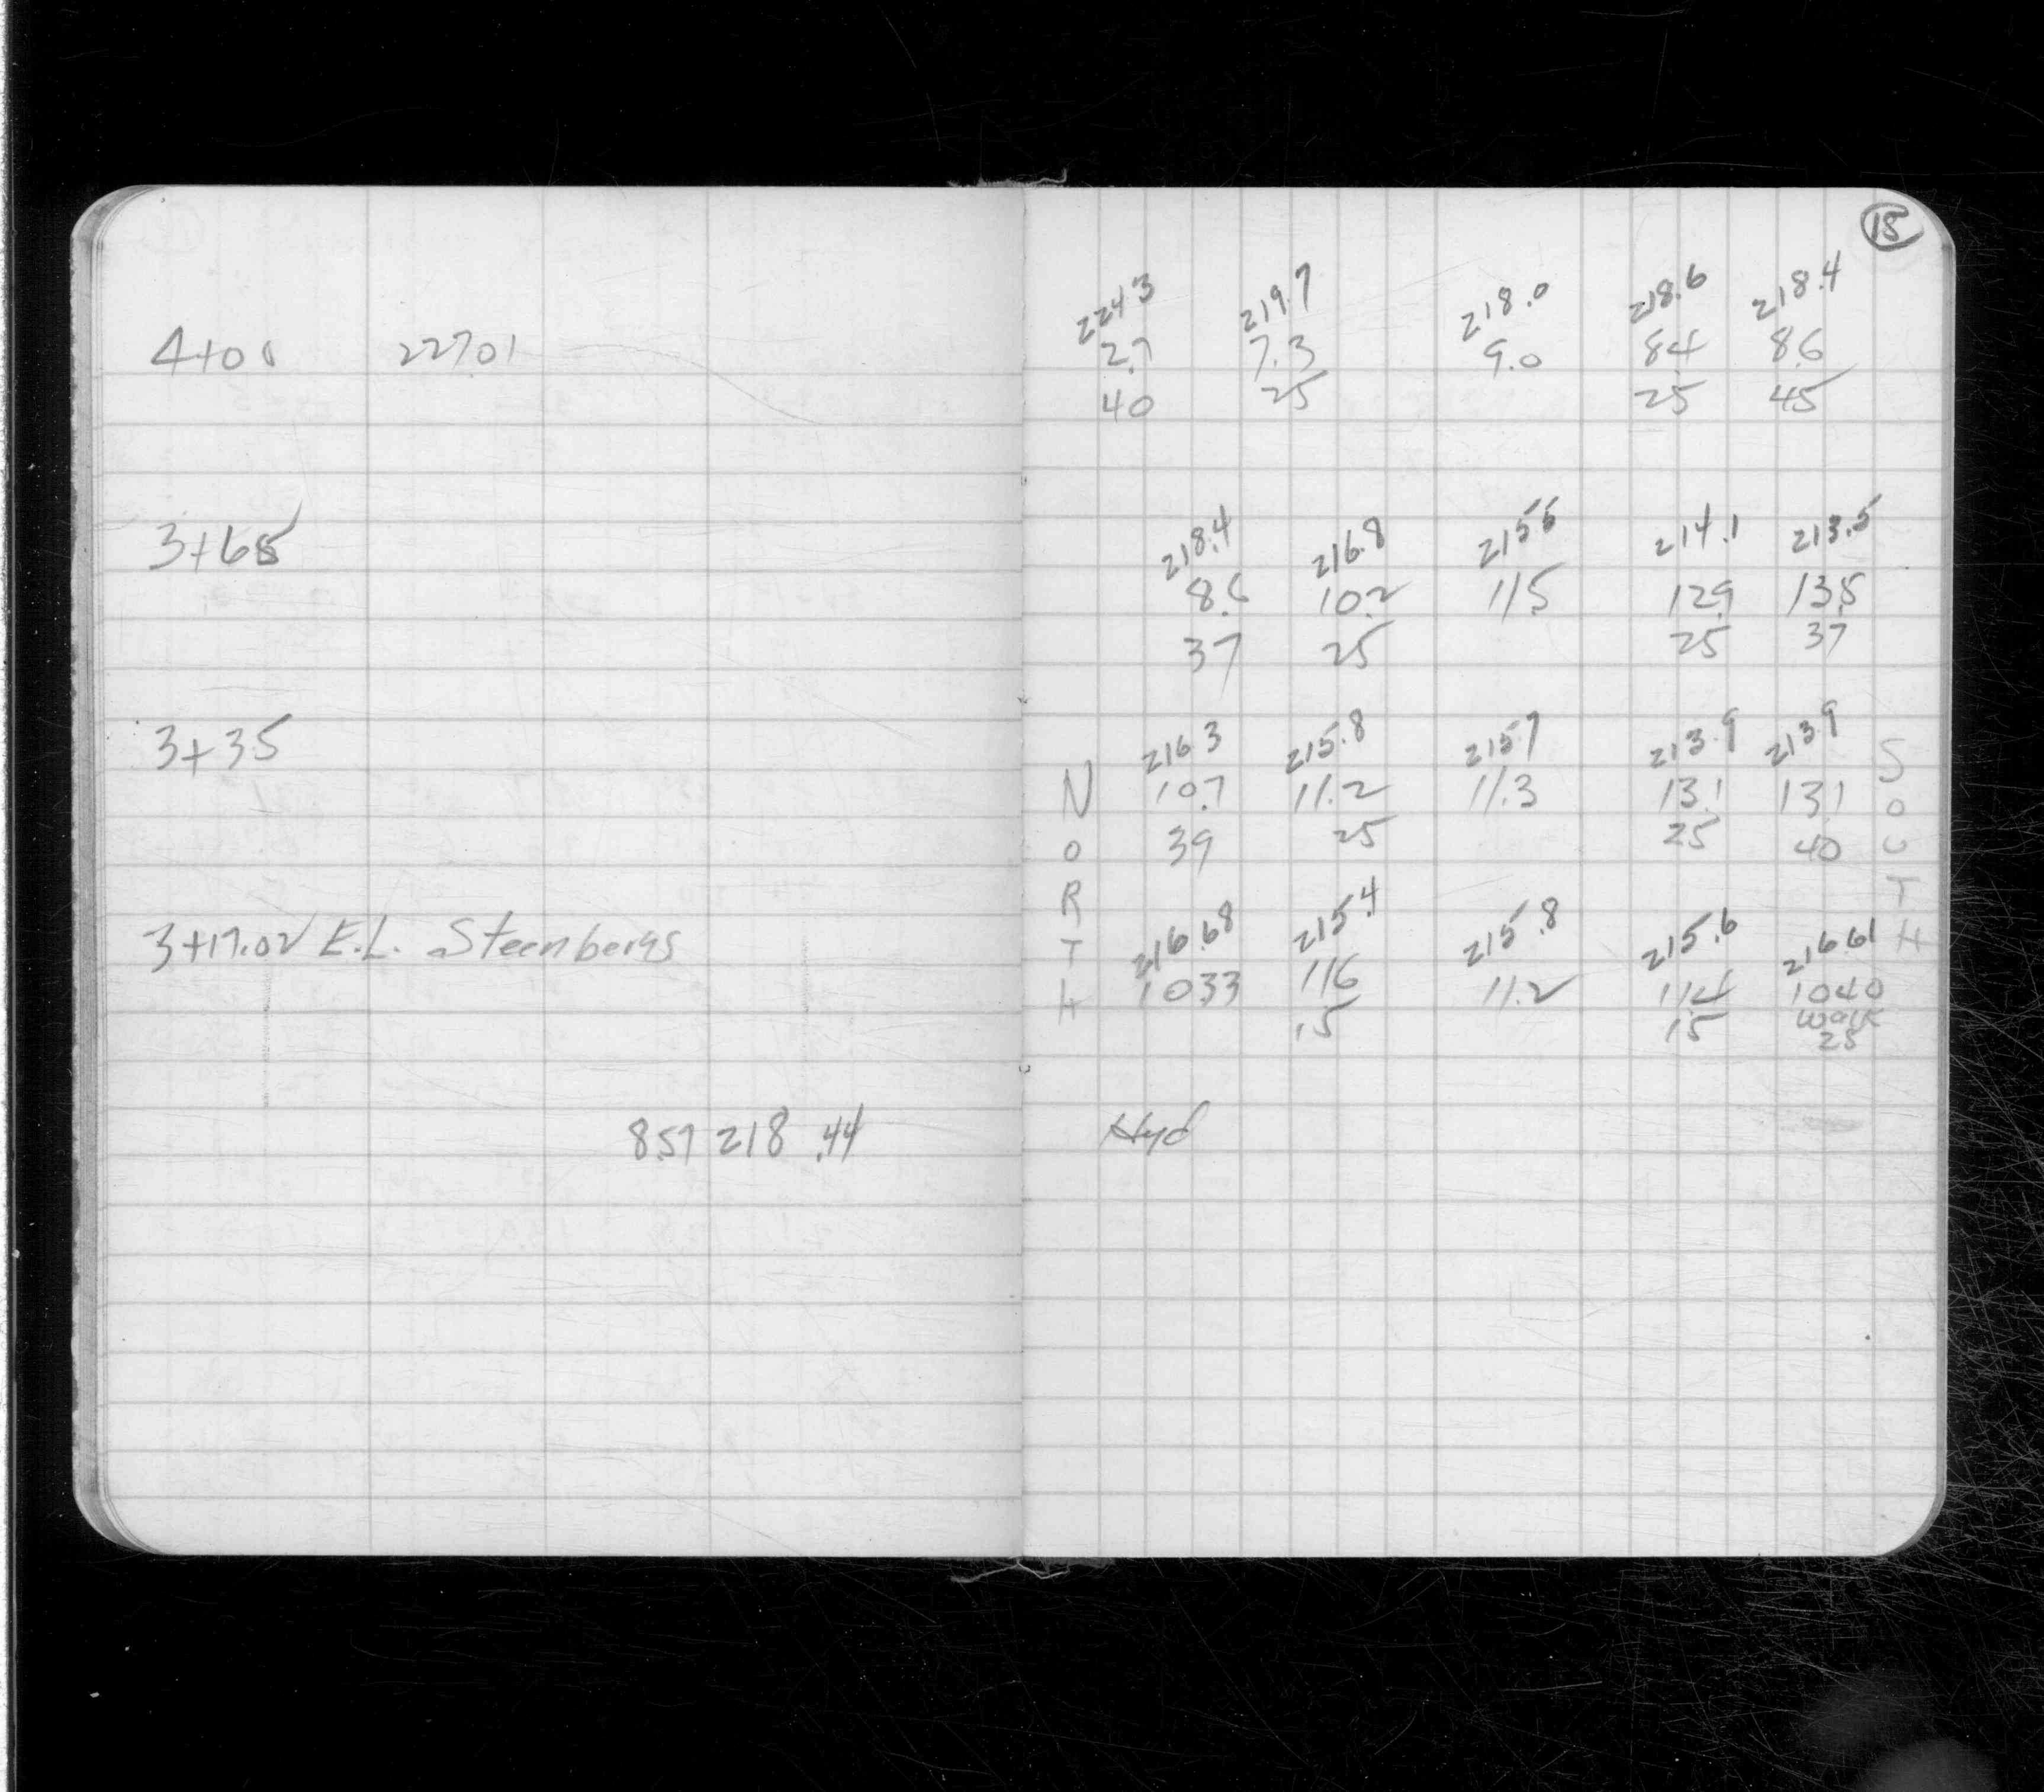 18
224.3 219.7 218.0 218.6 218.4
4+00 227.01 2.7 7.3 9.0 8.4 8.6
40 25 25 45
218.4 216.8 215.5 214.1 213.5
3+65 8.6 10.2 11.5 12.9 13.5
37 25 25 37
216.3 215.8 215.7 213.9 213.9
3+35 10.7 11.2 11.3 13.1 13.1
39 25 25 40
NORTH
SOUTH
216.68 215.4 215.8 215.6 216.61
3+17.02 E.L. Steenbergs 10.33 11.6 11.2 11.4 10.40
15 15 Walk
25
8.57 218.44 Hyd